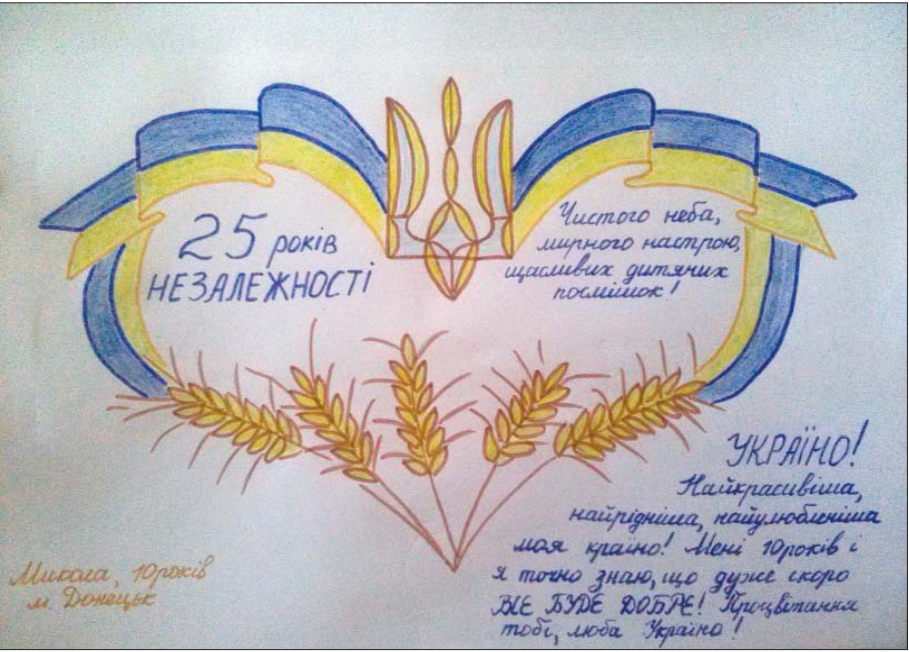 25 років
НЕЗАЛЕЖНОСТІ
Чистого неба,
мирного настрою,
щасливих дитячих
посмішок!
УКРАЇНО!
Найкрасивіша,
найрідніша, найулюбленіша
моя країно! Мені 10років і
я точно знаю, що дуже скоро
ВСЕ БУДЕ ДОБРЕ! Процвітання
тобі, люба Україно!
Микола, 10років
м. Донецьк